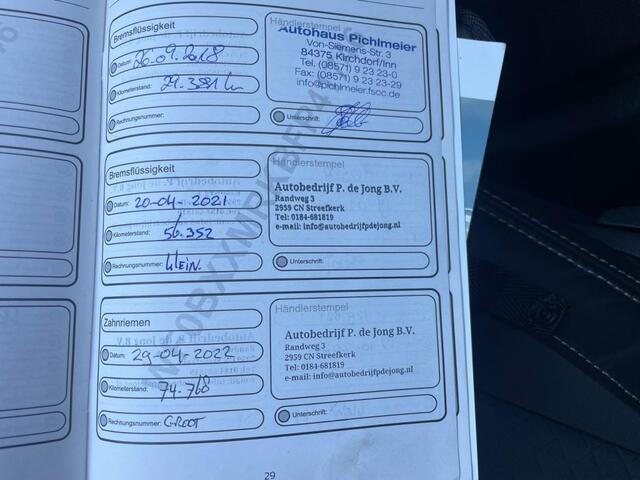 Bremsflüssigkeit
Datum: 26.09.2018
Kilometerstand: 29.381 km
Rechnungsnummer:
Händlerstempel
Autohaus Pichlmeier
Von-Siemens-Str. 3
84375 Kirchdorf/Inn
Tel. (08571) 9 23 23-0
Fax: (08571) 9 23 23-29
info@pichlmeier.fsoc.de
Unterschrift:
Bremsflüssigkeit
Datum: 20-04-2021
Kilometerstand: 56.352
Rechnungsnummer: Klein.
Händlerstempel
Autobedrijf P. de Jong B.V.
Randweg 3
2959 CN Streefkerk
Tel: 0184-681819
e-mail: info@autobedrijfpdejong.nl
Unterschrift:
Zahnriemen
Datum: 29-04-2022
Kilometerstand: 74.768
Rechnungsnummer: GROOT
Händlerstempel
Autobedrijf P. de Jong B.V.
Randweg 3
2959 CN Streefkerk
Tel: 0184-681819
e-mail: info@autobedrijfpdejong.nl
Unterschrift:
29